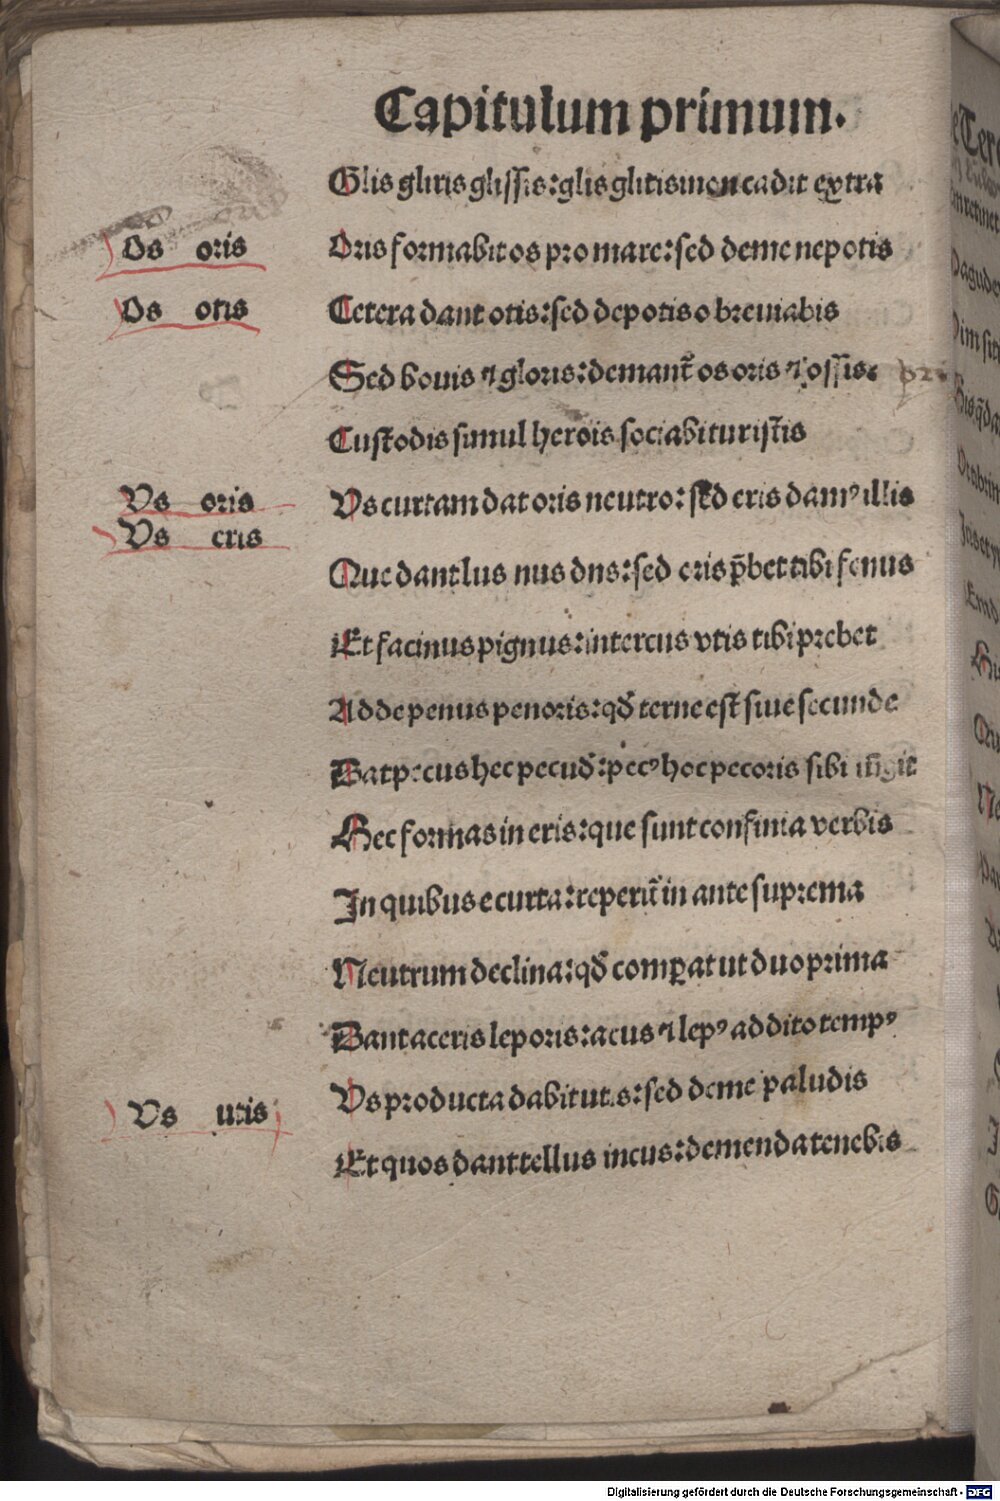 Capitulum primum.
Glis gliris glissis: glis glitis inon cadit extra
Os oris
Oris formabit os pro mare: sed deme nepotis
Os otis
Cetera dant otis: sed de potis o breuiabis
Sed bouis ⁊ gloris: demant̃ os oris ⁊ ossis.
Custodis simul herois sociabitur ist̃is
Us oris
Us curtam dat oris neutro: sed eris damꝰ illis
Us eris
Que dant lus nus dns: sed eris p̄bet tibi fenus
Et facinus pignus: intercus utis tibi prebet
Adde penus penoris: qđ terne est siue secunde
Dat pecus hec pecud̃: pecꝰ hoc pecoris sibi
Hec formas in eris: que sunt confinia verbis
In quibus e curta: reperit̃ in ante suprema
Neutrum declina: qđ comꝑat ut duo prima
Dant aceris leporis: acus ⁊ lepꝰ addito tempꝰ
Us utis
Us producta dabit utis: sed deme paludis
Et quos dant tellus incus: demenda tenebis
Digitalisierung gefördert durch die Deutsche Forschungsgemeinschaft - DFG